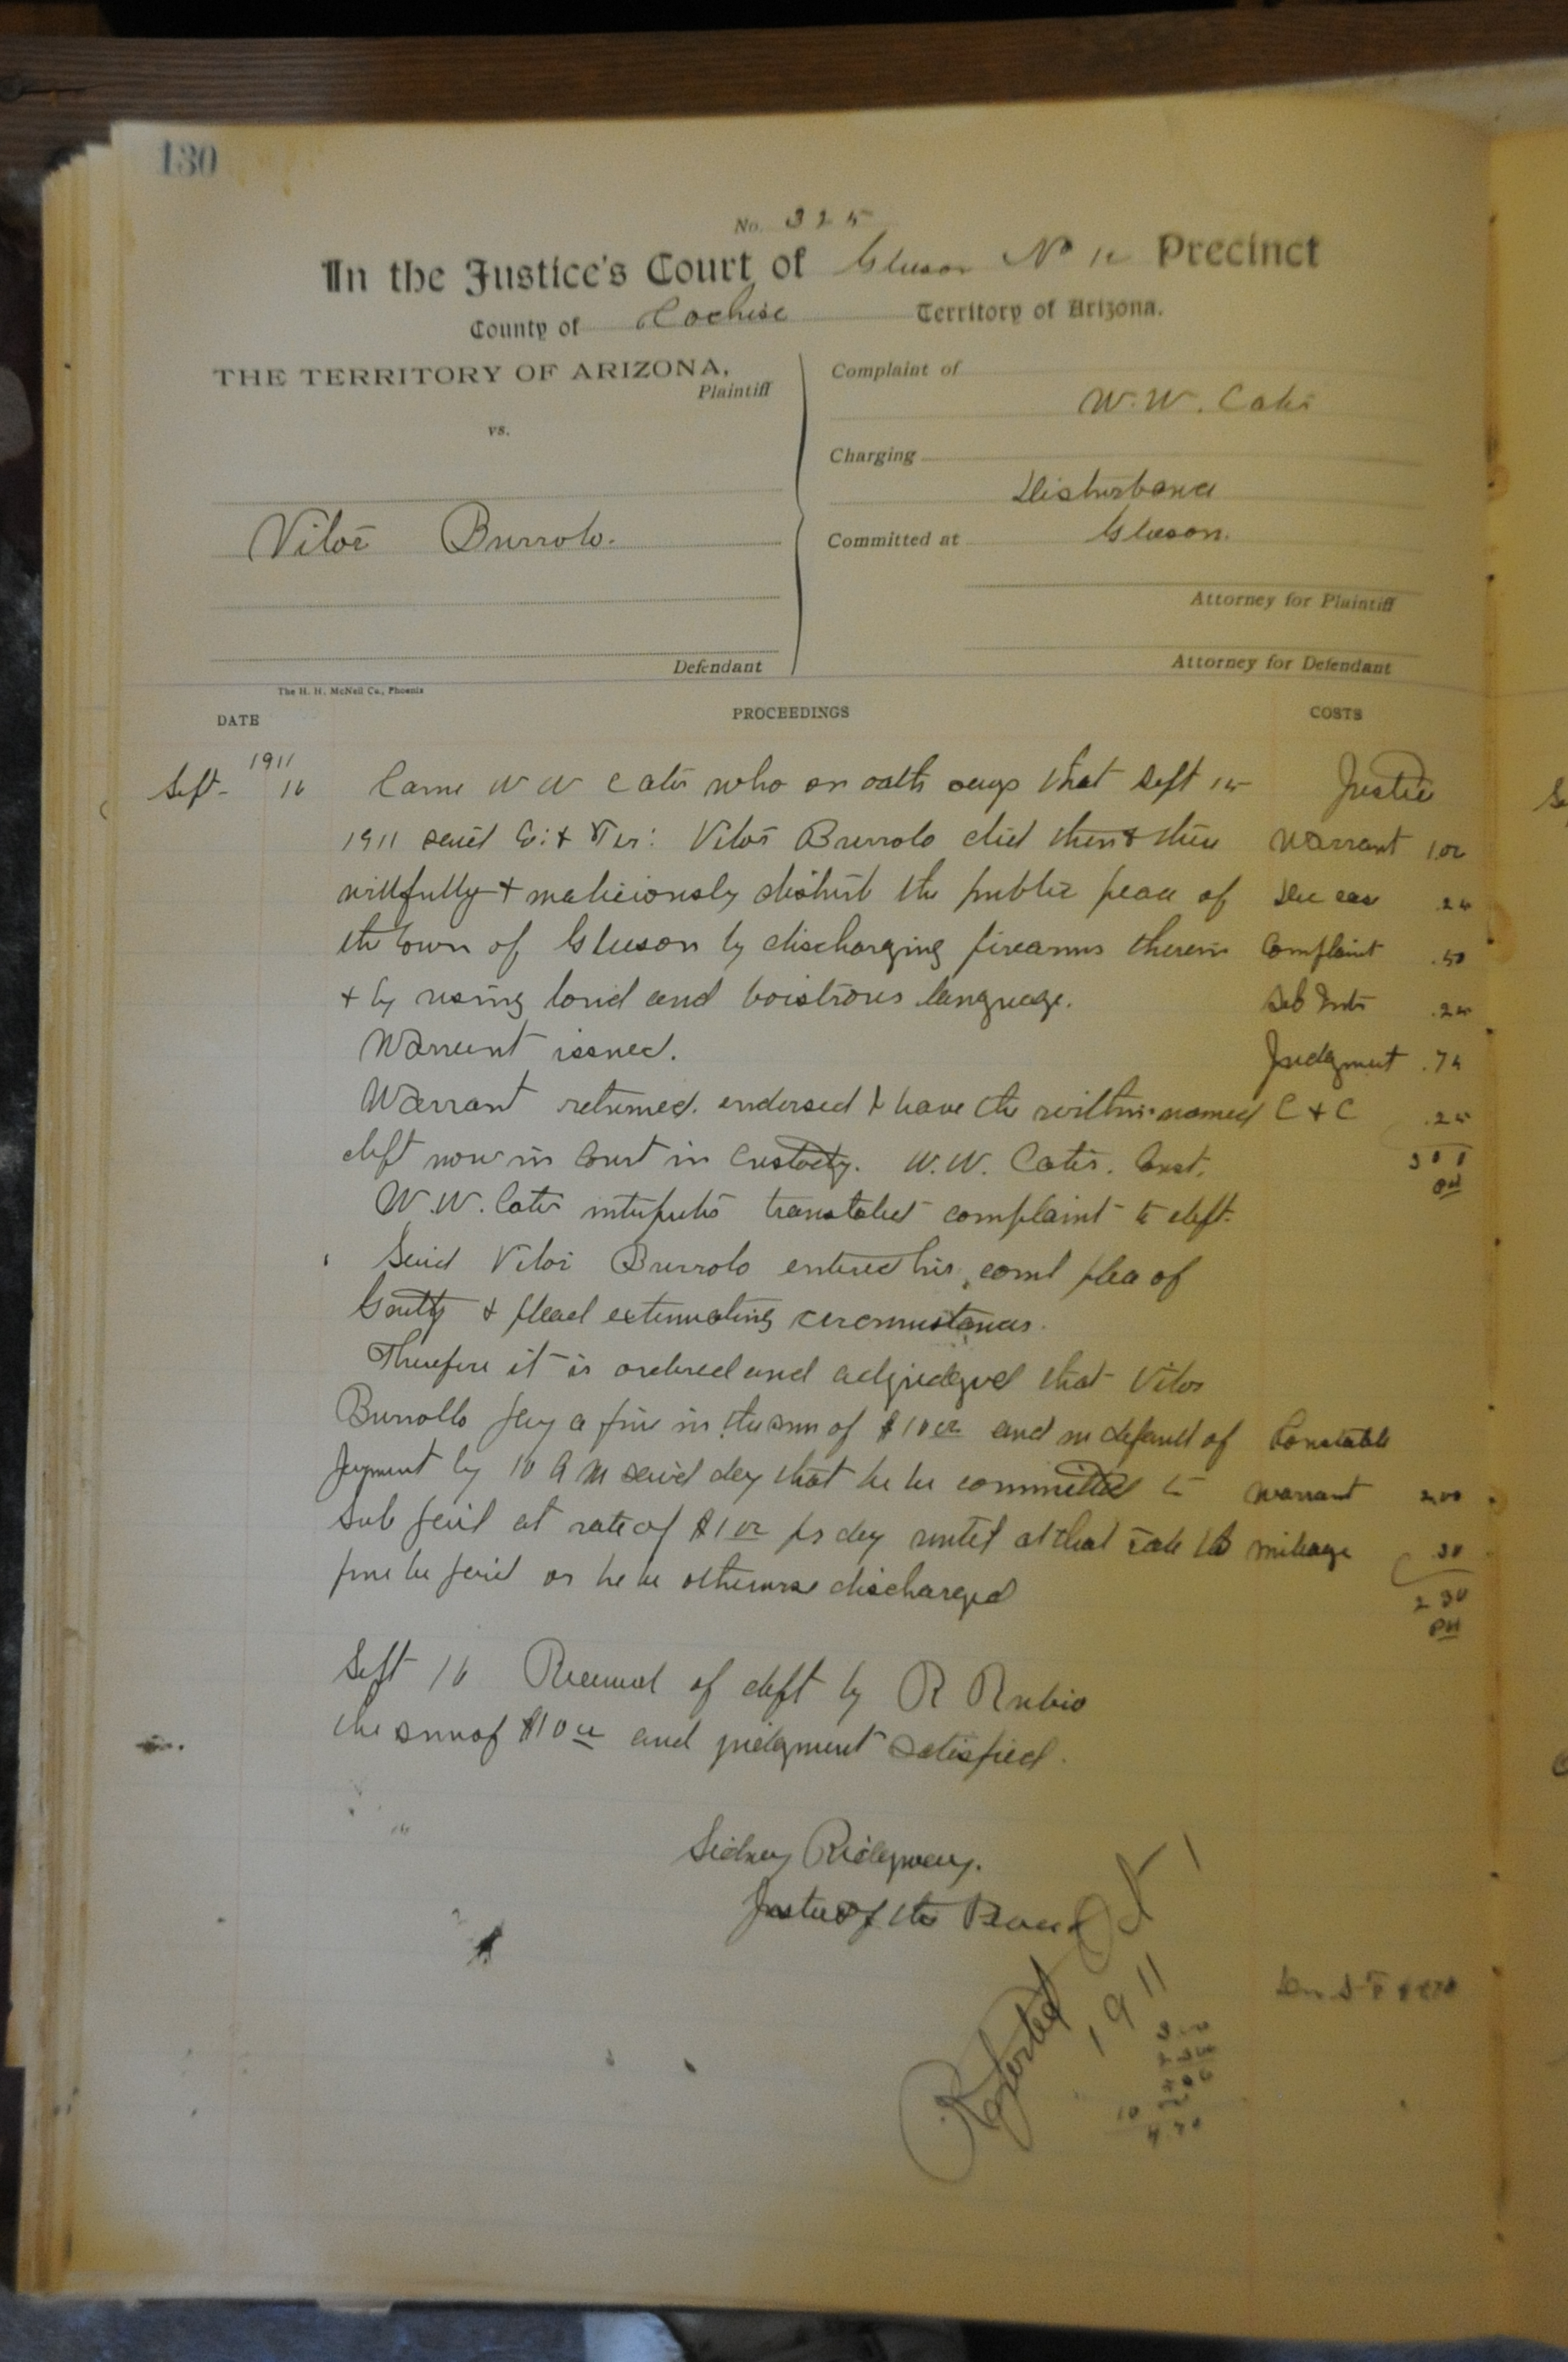 130
No. 325
In the Justice's Court of Gleeson No Precinct
County of Cochise Territory of Arizona.
THE TERRITORY OF ARIZONA,
Plaintiff
vs.
Burrolo.
Defendant
The H. H. McNeil Co., Phoenix
Complaint of
W. W. Cates
Charging
Disturbance
Committed at Gleeson.
Attorney for Plaintiff
Attorney for Defendant
DATE PROCEEDINGS COSTS
1911
Sept- 16 Came W W Cates who on oath says that Sept 15 Justice
1911 said Co: & Ter: Burrolo did then & there Warrant 1.00
willfully & maliciously disturb the public peace of .25
the town of Gleeson by discharging firearms therein Complaint .50
& by using loud and boistrous language. .25
Warrant issued. Judgment .75
Warrant returned. endorsed I have the within named C & C .25
deft now in Court in Custody. W.W. Cates. Const. 3 00
W.W. Cates translated complaint to deft. Pd
Said Burrolo entered his plea of
Guilty & plead extenuating circumstances.
Therefore it is ordered and adjudged that
Burrollo pay a fine in the sum of $10 00 and in default of Constable
payment by 10 A M said day that he be committed to Warrant 2.00
Sub jail at rate of $1 00 pr day until at that rate the mileage 30
fine be paid or he be otherwise discharged 2 30
Pd
Sept 16 Received of deft by R Rubio
the sum of $10 00 and judgment satisfied.
Sidney Ridgway.
Justice of the Peace
Reported Oct 1
1911